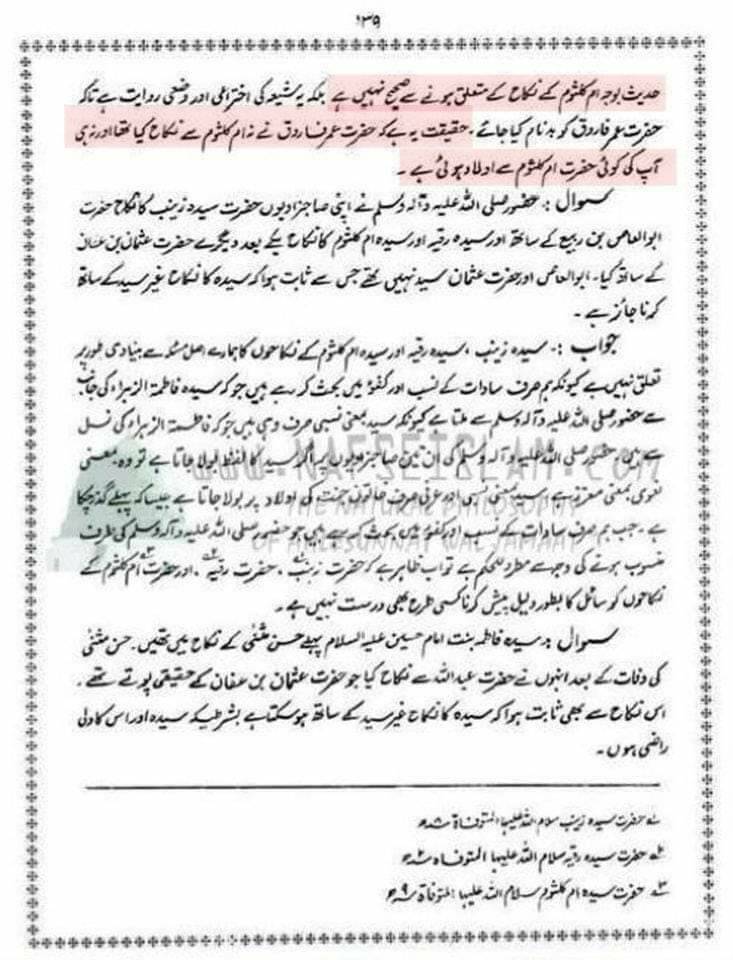 ۱۳۹
حدیث بوجہ ام کلثوم کے نکاح کے متعلق ہونے سے صحیح نہیں ہے بلکہ یہ شیعہ کی اختراعی اور وضعی روایت ہے تاکہ
حضرت عمر فاروق کو بدنام کیا جائے۔ حقیقت یہ ہے کہ حضرت عمر فاروق نے نہ ام کلثوم سے نکاح کیا تھا اور نہ ہی
آپ کی کوئی حضرت ام کلثوم سے اولاد ہوئی ہے۔
سوال :۔ حضور صلی اللہ علیہ وآلہ وسلم نے اپنی صاجزادیوں حضرت سیدہ زینب کا نکاح حضرت
ابوالعاص بن ربیع کے ساتھ اور سیدہ رقیہ اور سیدہ ام کلثوم کا نکاح یکے بعد دیگرے حضرت عثمان بن عفان
کے ساتھ کیا۔ ابوالعاص اور حضرت عثمان سید نہیں تھے جس سے ثابت ہوا کہ سیدہ کا نکاح غیر سید کے ساتھ
کرنا جائز ہے۔
جواب :۔ سیدہ زینب، سیدہ رقیہ اور سیدہ ام کلثوم کے نکاحوں کا ہمارے اصل مسئلہ سے بنیادی طور پر
تعلق نہیں ہے کیونکہ ہم صرف سادات کے نسب اور کفؤ میں بحث کر رہے ہیں جو کہ سیدہ فاطمۃ الزہراء کی جانب
سے حضور صلی اللہ علیہ وآلہ وسلم سے ملتا ہے کیونکہ سید بمعنی نسبی صرف وہی ہیں جو کہ فاطمۃ الزہراء کی نسل
سے ہیں۔ حضور صلی اللہ علیہ وآلہ وسلم کی ان تین صاجزادیوں پر اگر سید کا لفظ بولا جاتا ہے تو وہ بمعنی
لغوی بمعنی معزز ہے، سید بمعنی نسبی اور عرفی صرف خاتون جنت کی اولاد پر بولا جاتا ہے جیسا کہ پہلے گذر چکا
ہے۔ جب ہم صرف سادات کے نسب اور کفؤ میں بحث کر رہے ہیں جو حضور صلی اللہ علیہ وآلہ وسلم کی طرف
منسوب ہونے کی وجہ سے ہے تو اب ظاہر ہے کہ حضرت زینب۱، حضرت رقیہ۲، اور حضرت ام کلثوم۳ کے
نکاحوں کو سائل کا بطور دلیل پیش کرنا کسی طرح بھی درست نہیں ہے۔
سوال :۔ سیدہ فاطمہ بنت امام حسین علیہ السلام پہلے حسن مثنٰی کے نکاح میں تھیں۔ حسن مثنٰی
کی وفات کے بعد انہوں نے حضرت عبد اللہ سے نکاح کیا جو حضرت عثمان بن عفان کے حقیقی پوتے تھے۔
اس نکاح سے بھی ثابت ہوا کہ سیدہ کا نکاح غیر سید کے ساتھ ہو سکتا ہے بشرطیکہ سیدہ اور اس کا ولی
راضی ہوں۔
۱؎ حضرت سیدہ زینب سلام اللہ علیہا المتوفاۃ ۸ھ
۲؎ حضرت سیدہ رقیہ سلام اللہ علیہا المتوفاہ ۲ھ
۳؎ حضرت سیدہ ام کلثوم سلام اللہ علیہا المتوفاۃ ۹ھ
WWW.NAFSEISLAM.COM
THE NATURAL PHILOSOPHY
OF AHLESUNNAT WAL JAMAAT